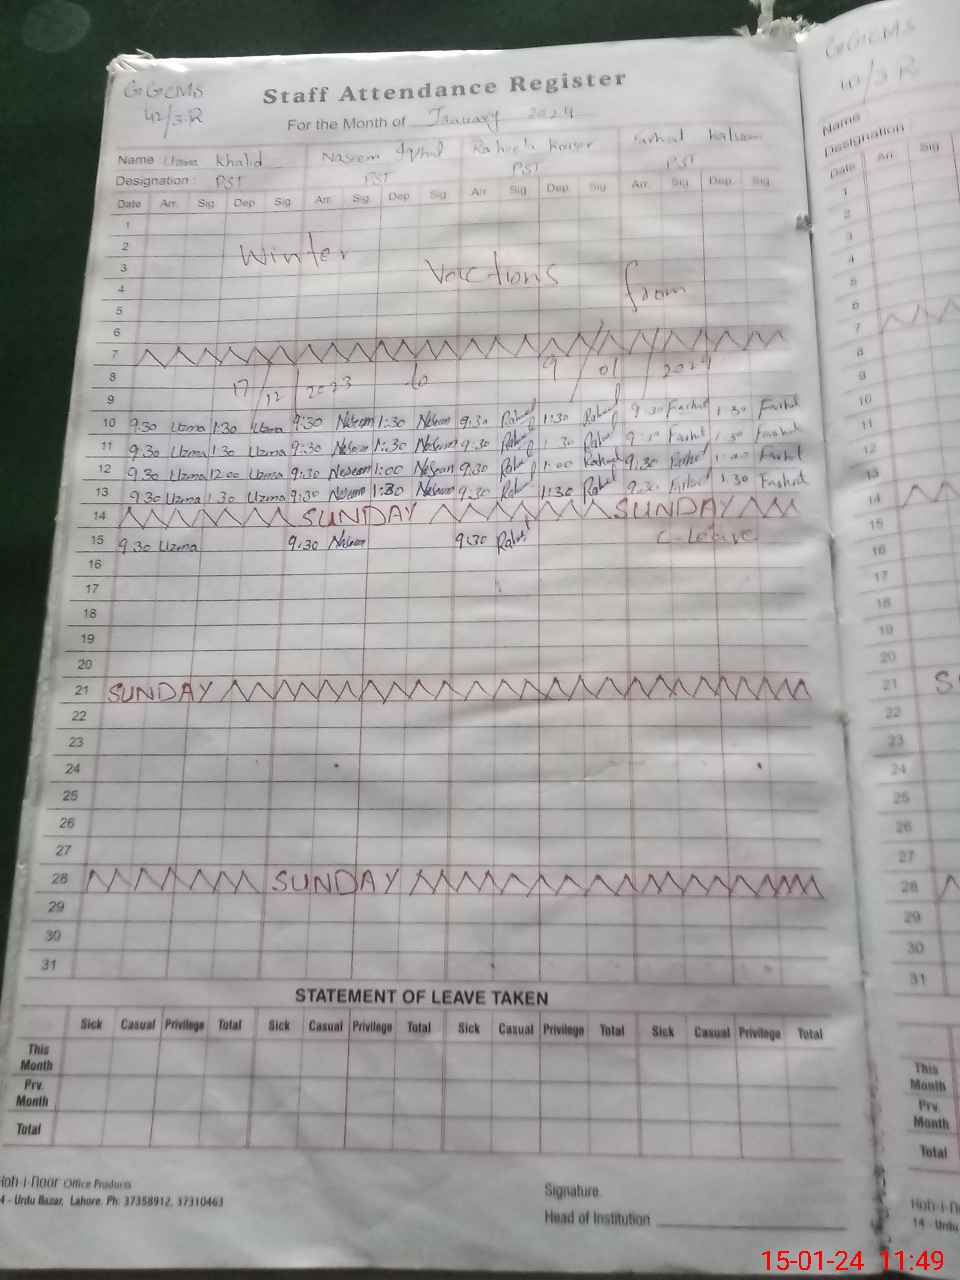 GGCMS
42/3.R
Staff Attendance Register
For the Month of January 2024
Name Uzma Khalid Naseem Iqbal Raheela Kouser Kalsoom
Designation : PST PST PST PST
Date Arr. Sig Dep Sig Arr. Sig. Dep Sig Arr Sig Dep. Sig Arr. Sig Dep. Sig
1
2 Winter
3 Vactions from
4
5
6
7
8 17/12/2023 to 9/01/2024
9
10 9:30 Uzma 1:30 Uzma 9:30 Naseem 1:30 Naseem 9:30 1:30 9:30 Farhat 1:30 Farhat
11 9:30 Uzma 1:30 Uzma 9:30 Naseem 1:30 Naseem 9:30 1:30 Farhat 1:30 Farhat
12 9:30 Uzma 12:00 Uzma 9:30 Naseem 1:00 Naseem 9:30 1:00 9:30 Farhat 1:00 Farhat
13 9:30 Uzma 1:30 Uzma 9:30 Naseem 1:30 Naseem 9:30 1:30 9:30 Farhat 1:30 Farhat
14 SUNDAY SUNDAY
15 9:30 Uzma 9:30 Naseem 9:30 C-Leave
16
17
18
19
20
21 SUNDAY
22
23
24
25
26
27
28 SUNDAY
29
30
31
STATEMENT OF LEAVE TAKEN
Sick Casual Privilege Total Sick Casual Privilege Total Sick Casual Privilege Total Sick Casual Privilege Total
This
Month
Prv.
Month
Total
Koh-i-noor Office Products
14 - Urdu Bazar, Lahore. Ph: 37358912, 37310463
Signature.
Head of Institution
GGCMS
42/3.R
Name
Designation :
Date Arr. Sig
1
2
3
4
5
6
7
8
9
10
11
12
13
14
15
16
17
18
19
20
21 S
22
23
24
25
26
27
28
29
30
31
This
Month
Prv.
Month
Total
14 - Urdu
15-01-24 11:49